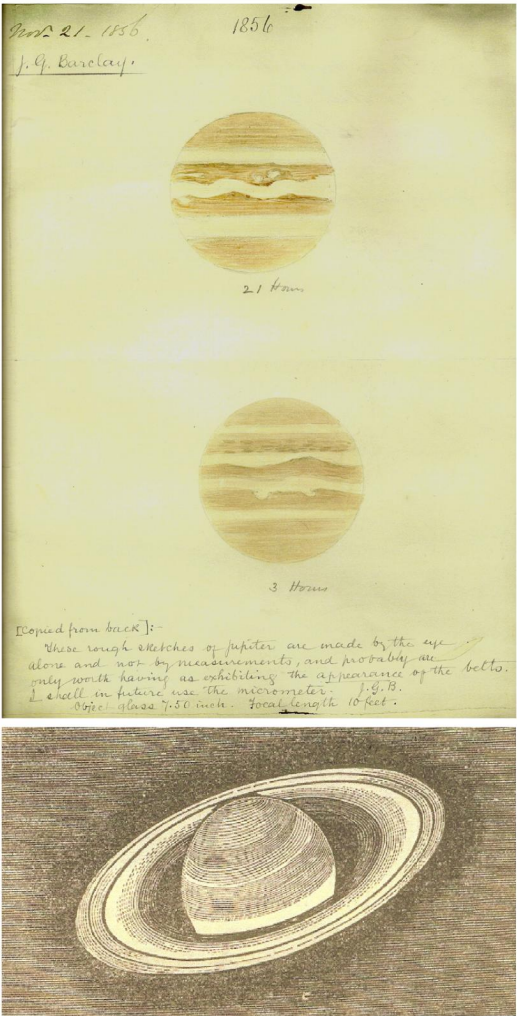 Nov. 21 - 1856.
1856
J. G. Barclay.
21 Hours
3 Hours
[Copied from back]:-
These rough sketches of Jupiter are made by the eye
alone and not by measurements, and probably are
only worth having as exhibiting the appearance of the belts.
I shall in future use the micrometer. J.G.B.
Object glass 7.50 inch. Focal length 10 feet.